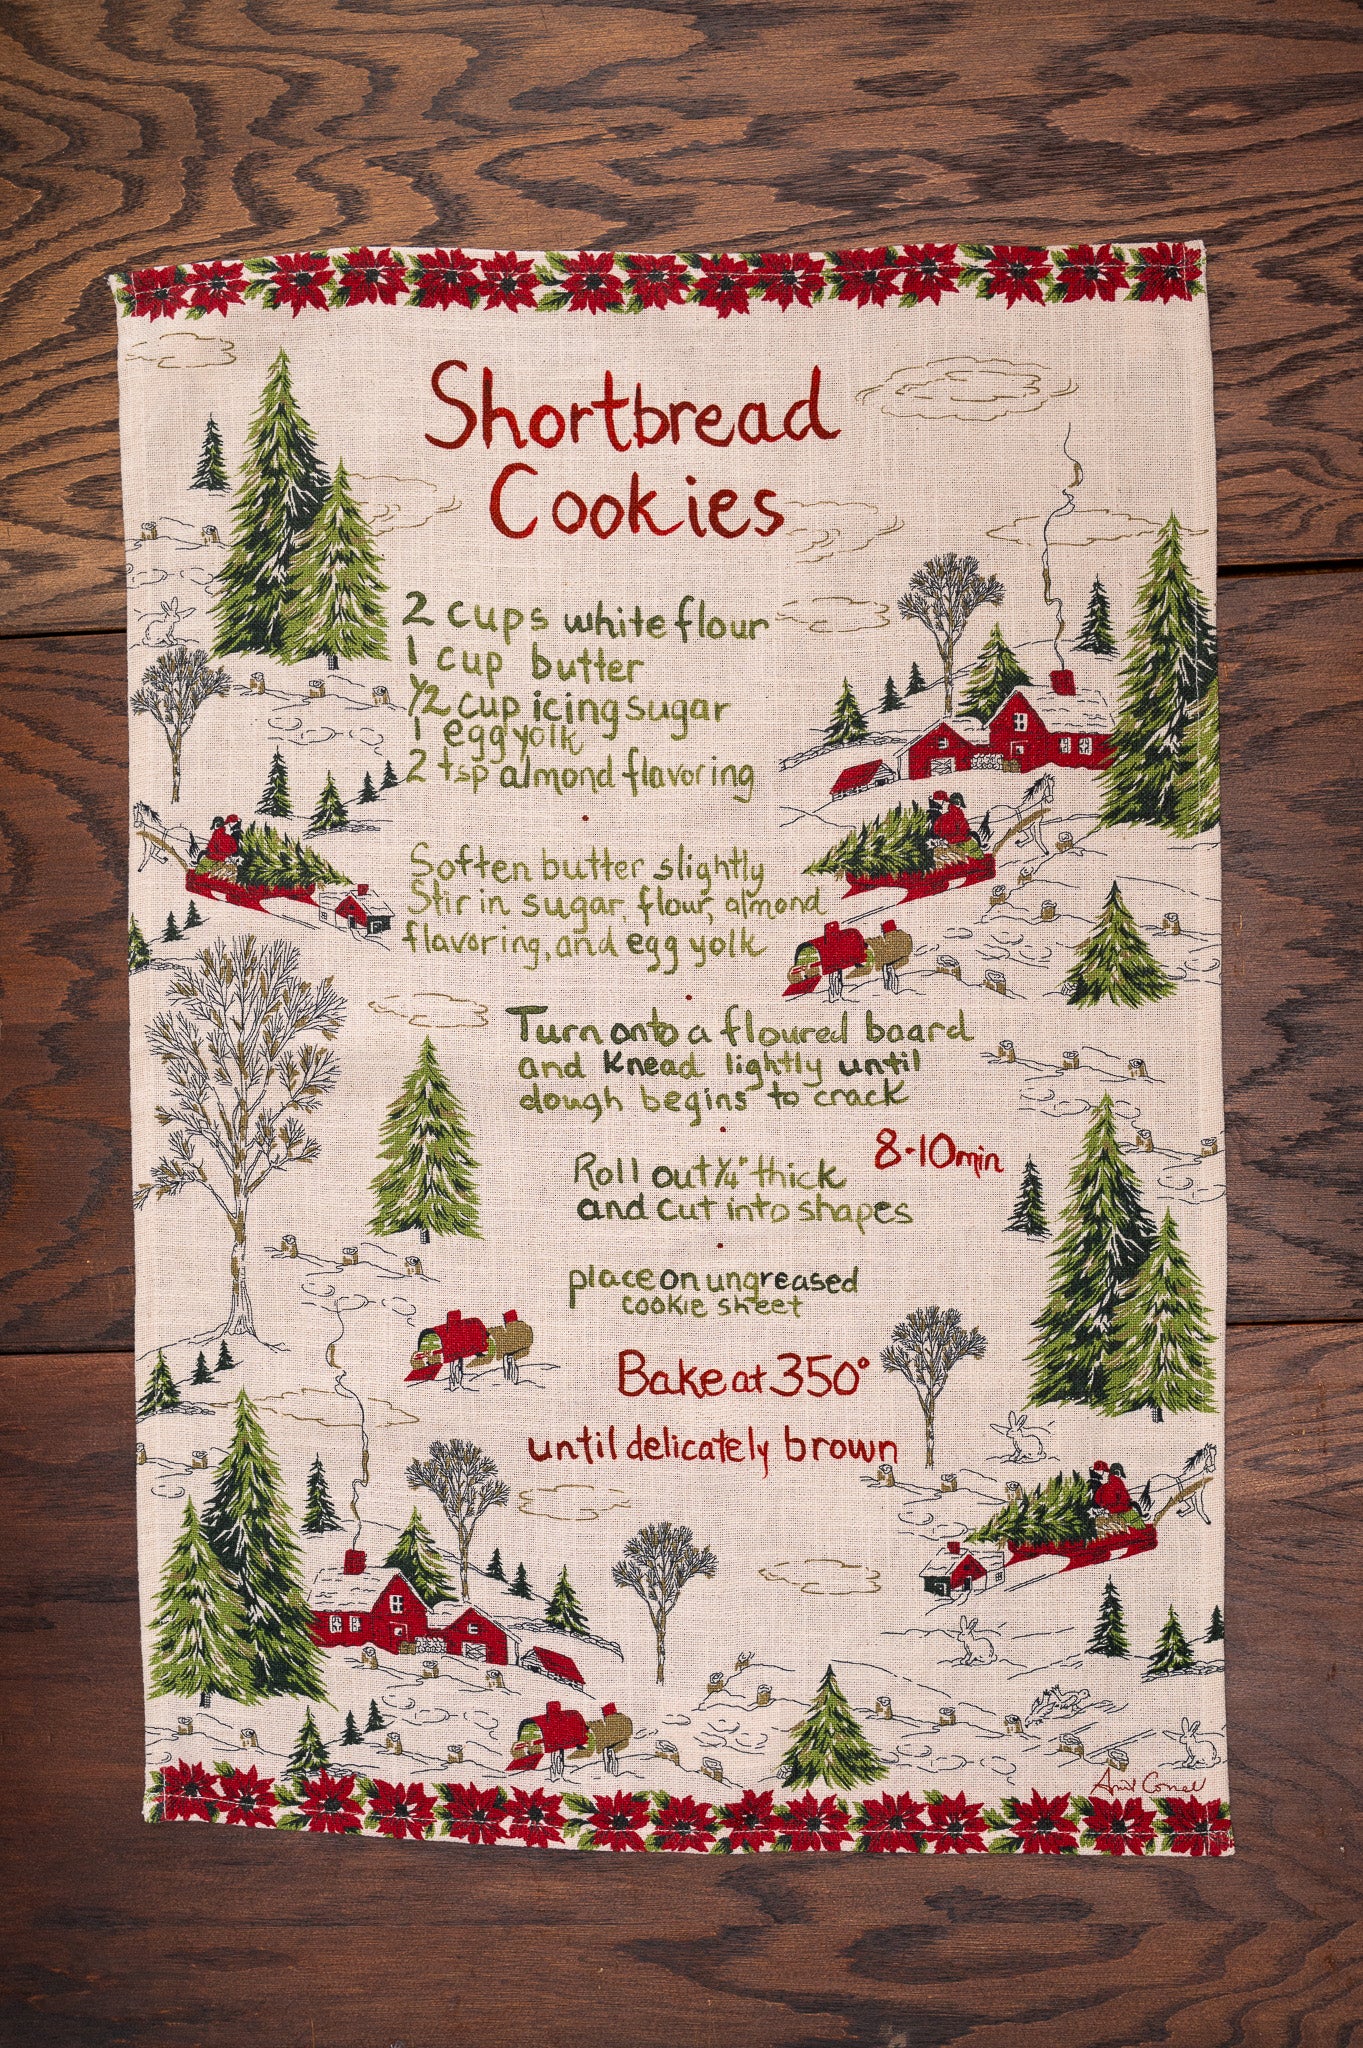 Shortbread
Cookies
2 cups white flour
1 cup butter
1/2 cup icing sugar
1 egg yolk
2 tsp almond flavoring
Soften butter slightly
Stir in sugar, flour, almond
flavoring, and egg yolk
Turn onto a floured board
and knead lightly until
dough begins to crack
8-10 min
Roll out 1/4" thick
and cut into shapes
place on ungreased
cookie sheet
Bake at 350°
until delicately brown